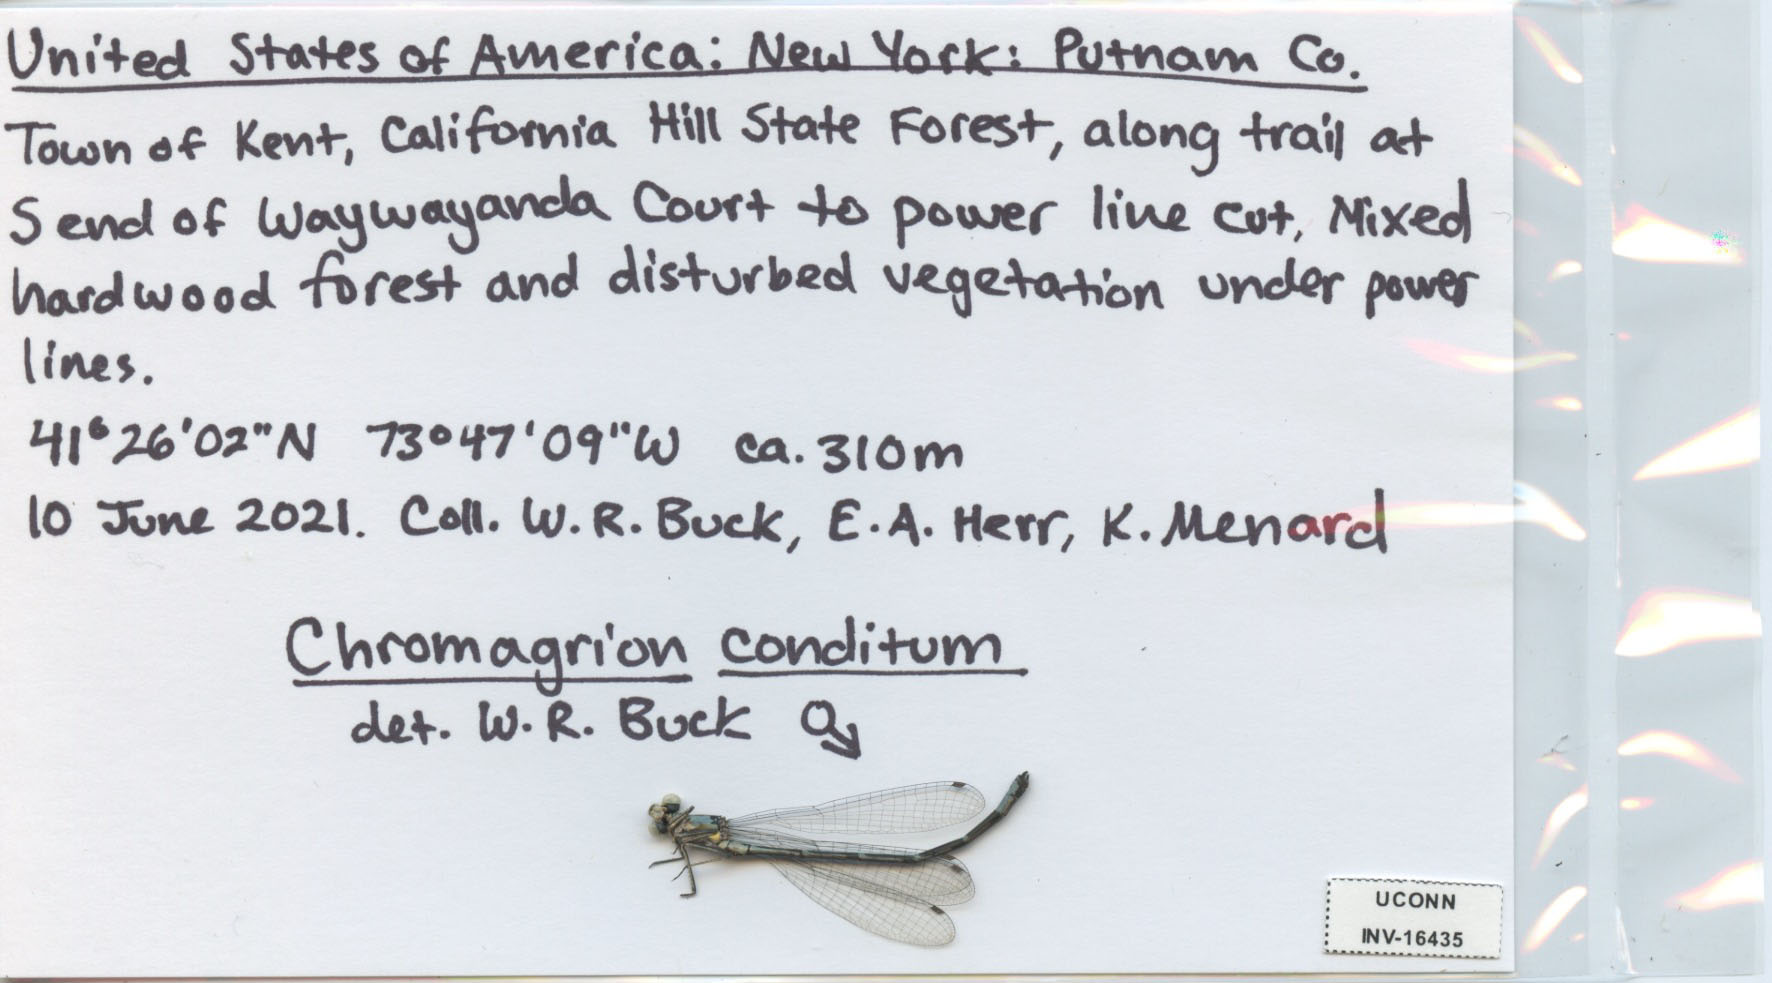 United States of America: New York: Putnam Co.
Town of Kent, California Hill State Forest, along trail at
S end of Waywayanda Court to power line cut, Mixed
hardwood forest and disturbed vegetation under power
lines.
41°26'02"N 73°47'09"W ca. 310m
10 June 2021. Coll. W.R. Buck, E.A. Herr, K. Menard
Chromagrion conditum
det. W.R. Buck ♂
UCONN
INV-16435